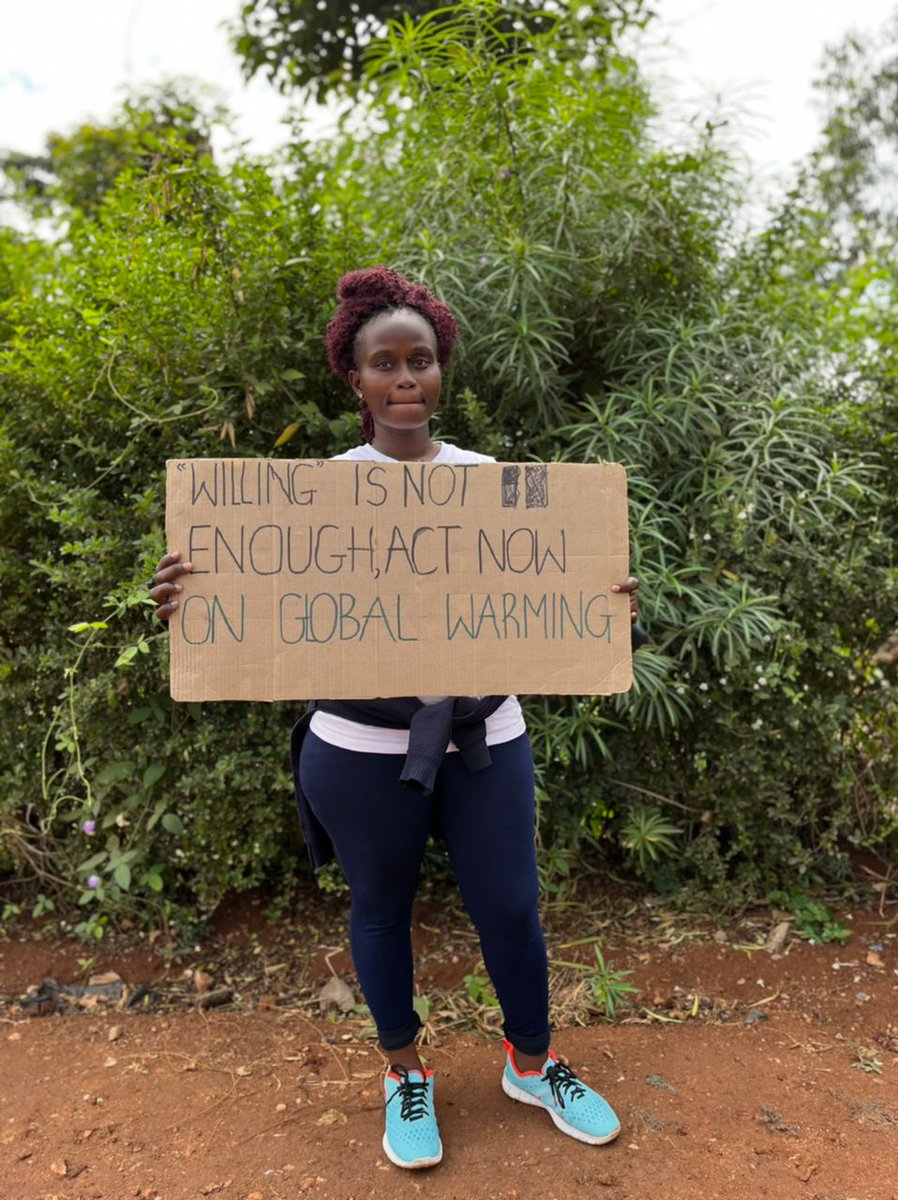 "WILLING" IS NOT
ENOUGH, ACT NOW
ON GLOBAL WARMING